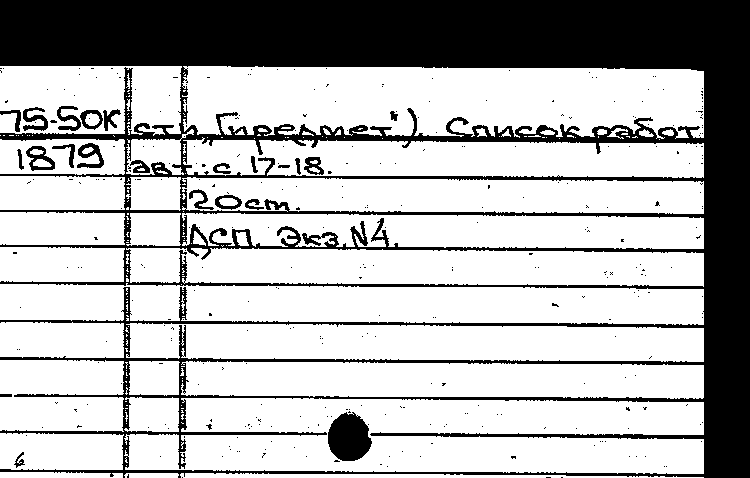 75-50К сти „Предмет"). Список работ
1879 авт.: с. 17-18.
20 ст.
ДСП. Экз. N4.
6